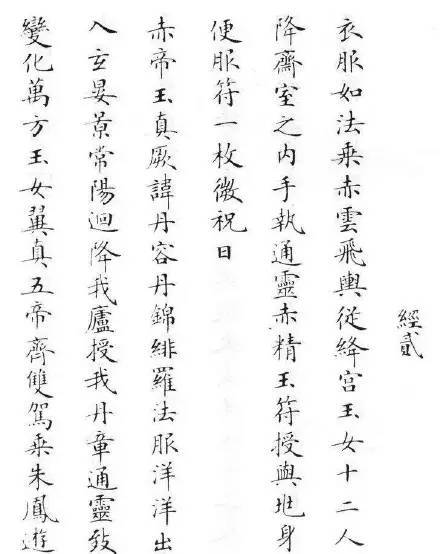 經貳
衣服如法乘赤雲飛輿從絳宫玉女十二人
降齋室之内手執通靈赤精玉符授與兆身
便服符一枚微祝曰
赤帝玉真厥諱丹容丹錦緋羅法服洋洋出
入玄晏景常陽迴降我廬授我丹章通靈致
變化萬方玉女翼真五帝齊雙駕乘朱鳳遊